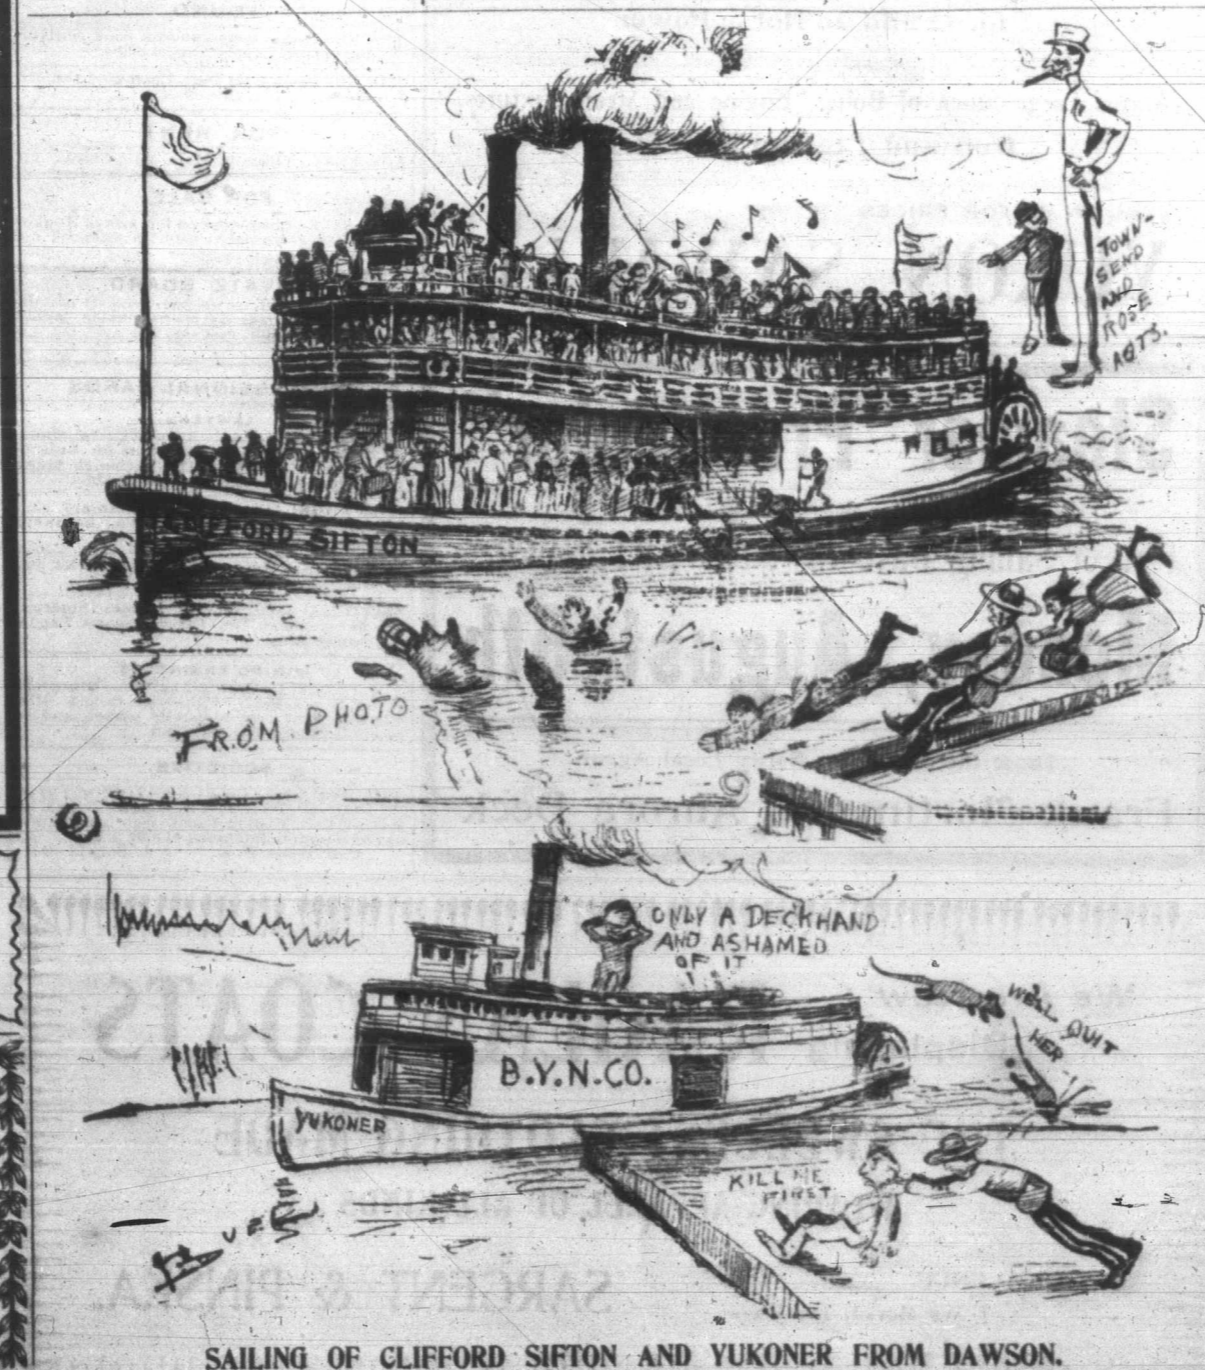 TOWN-
SEND
AND
ROSE
AGTS.
CLIFFORD SIFTON
FROM PHOTO
ONLY A DECKHAND
AND ASHAMED
OF IT
WE'LL QUIT
HER
B.Y.N.CO.
YUKONER
KILL ME
FIRST
SAILING OF CLIFFORD SIFTON AND YUKONER FROM DAWSON.